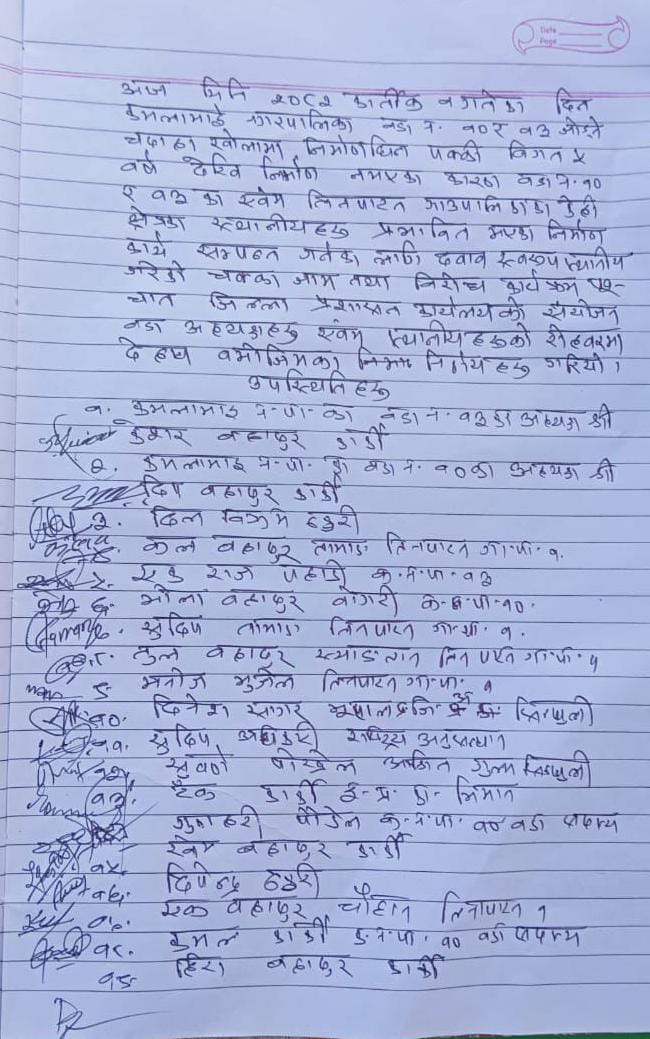 Date
Page
आज मिति २०८२ कार्तीक ७ गतेका दिन
कमलामाई नगरपालिका वडा नं. १० र १३ जोड्ने
चदाहा खोलामा निर्माणाधिन पक्की विगत ५
वर्ष देखि निर्माण नभएका कारण वडा नं. १०
र १३ का एवंम तिनपाटन गाउपालिकाका केही
क्षेत्रका स्थानीयहरु प्रभावित भएका निर्माण
कार्य सम्पन्न गर्नका लागि दवाव स्वरुप स्थानीय
गरेको चक्का जाम तथा विरोध कार्यक्रम पश्-
चात जिल्ला प्रशासन कार्यलयको संयोजन
वडा अध्यक्षहरु एवंम स्थानीयहरुको रोहवरमा
देहाय वमोजिमका निम्न निर्णयहरु गरियो।
उपस्थितिहरु
१. कमलामाइ न.पा. का वडा नं. १३ का अध्यक्ष श्री
बहादुर कार्की
२. कमलामाइ न.पा. का वडा नं. १० का अध्यक्ष श्री
दिप बहादुर कार्की
३. दिल विक्रम
बहादुर तामाङ तिनपाटन गा.पा. १.
५. राज पहाडी क.न.पा. १३
६. भोला बहादुर क.न.पा. १०.
७. सुदिप तामाङ तिनपाटन गा.पा. १.
८. तुल बहादुर तिनपाटन गा.पा. ५
९. मनोज भुजेल तिनपाटन गा.पा. १
१०. दिनेश सागर सिन्धुली
११. सुदिप अधिकारी राष्ट्रिय अनुसन्धान
१२. सुवर्ण पोखरेल गुल्म सिन्धुली
१३. टेक कार्की
पौडेल क.न.पा. १० वडा सदस्य
१५. बहादुर कार्की
१६. दिपेन्द्र
१७. एक बहादुर चौहान तिनपाटन १
१८. कमल कार्की क.न.पा. १० वडा सदस्य
१९. हिरा बहादुर कार्की